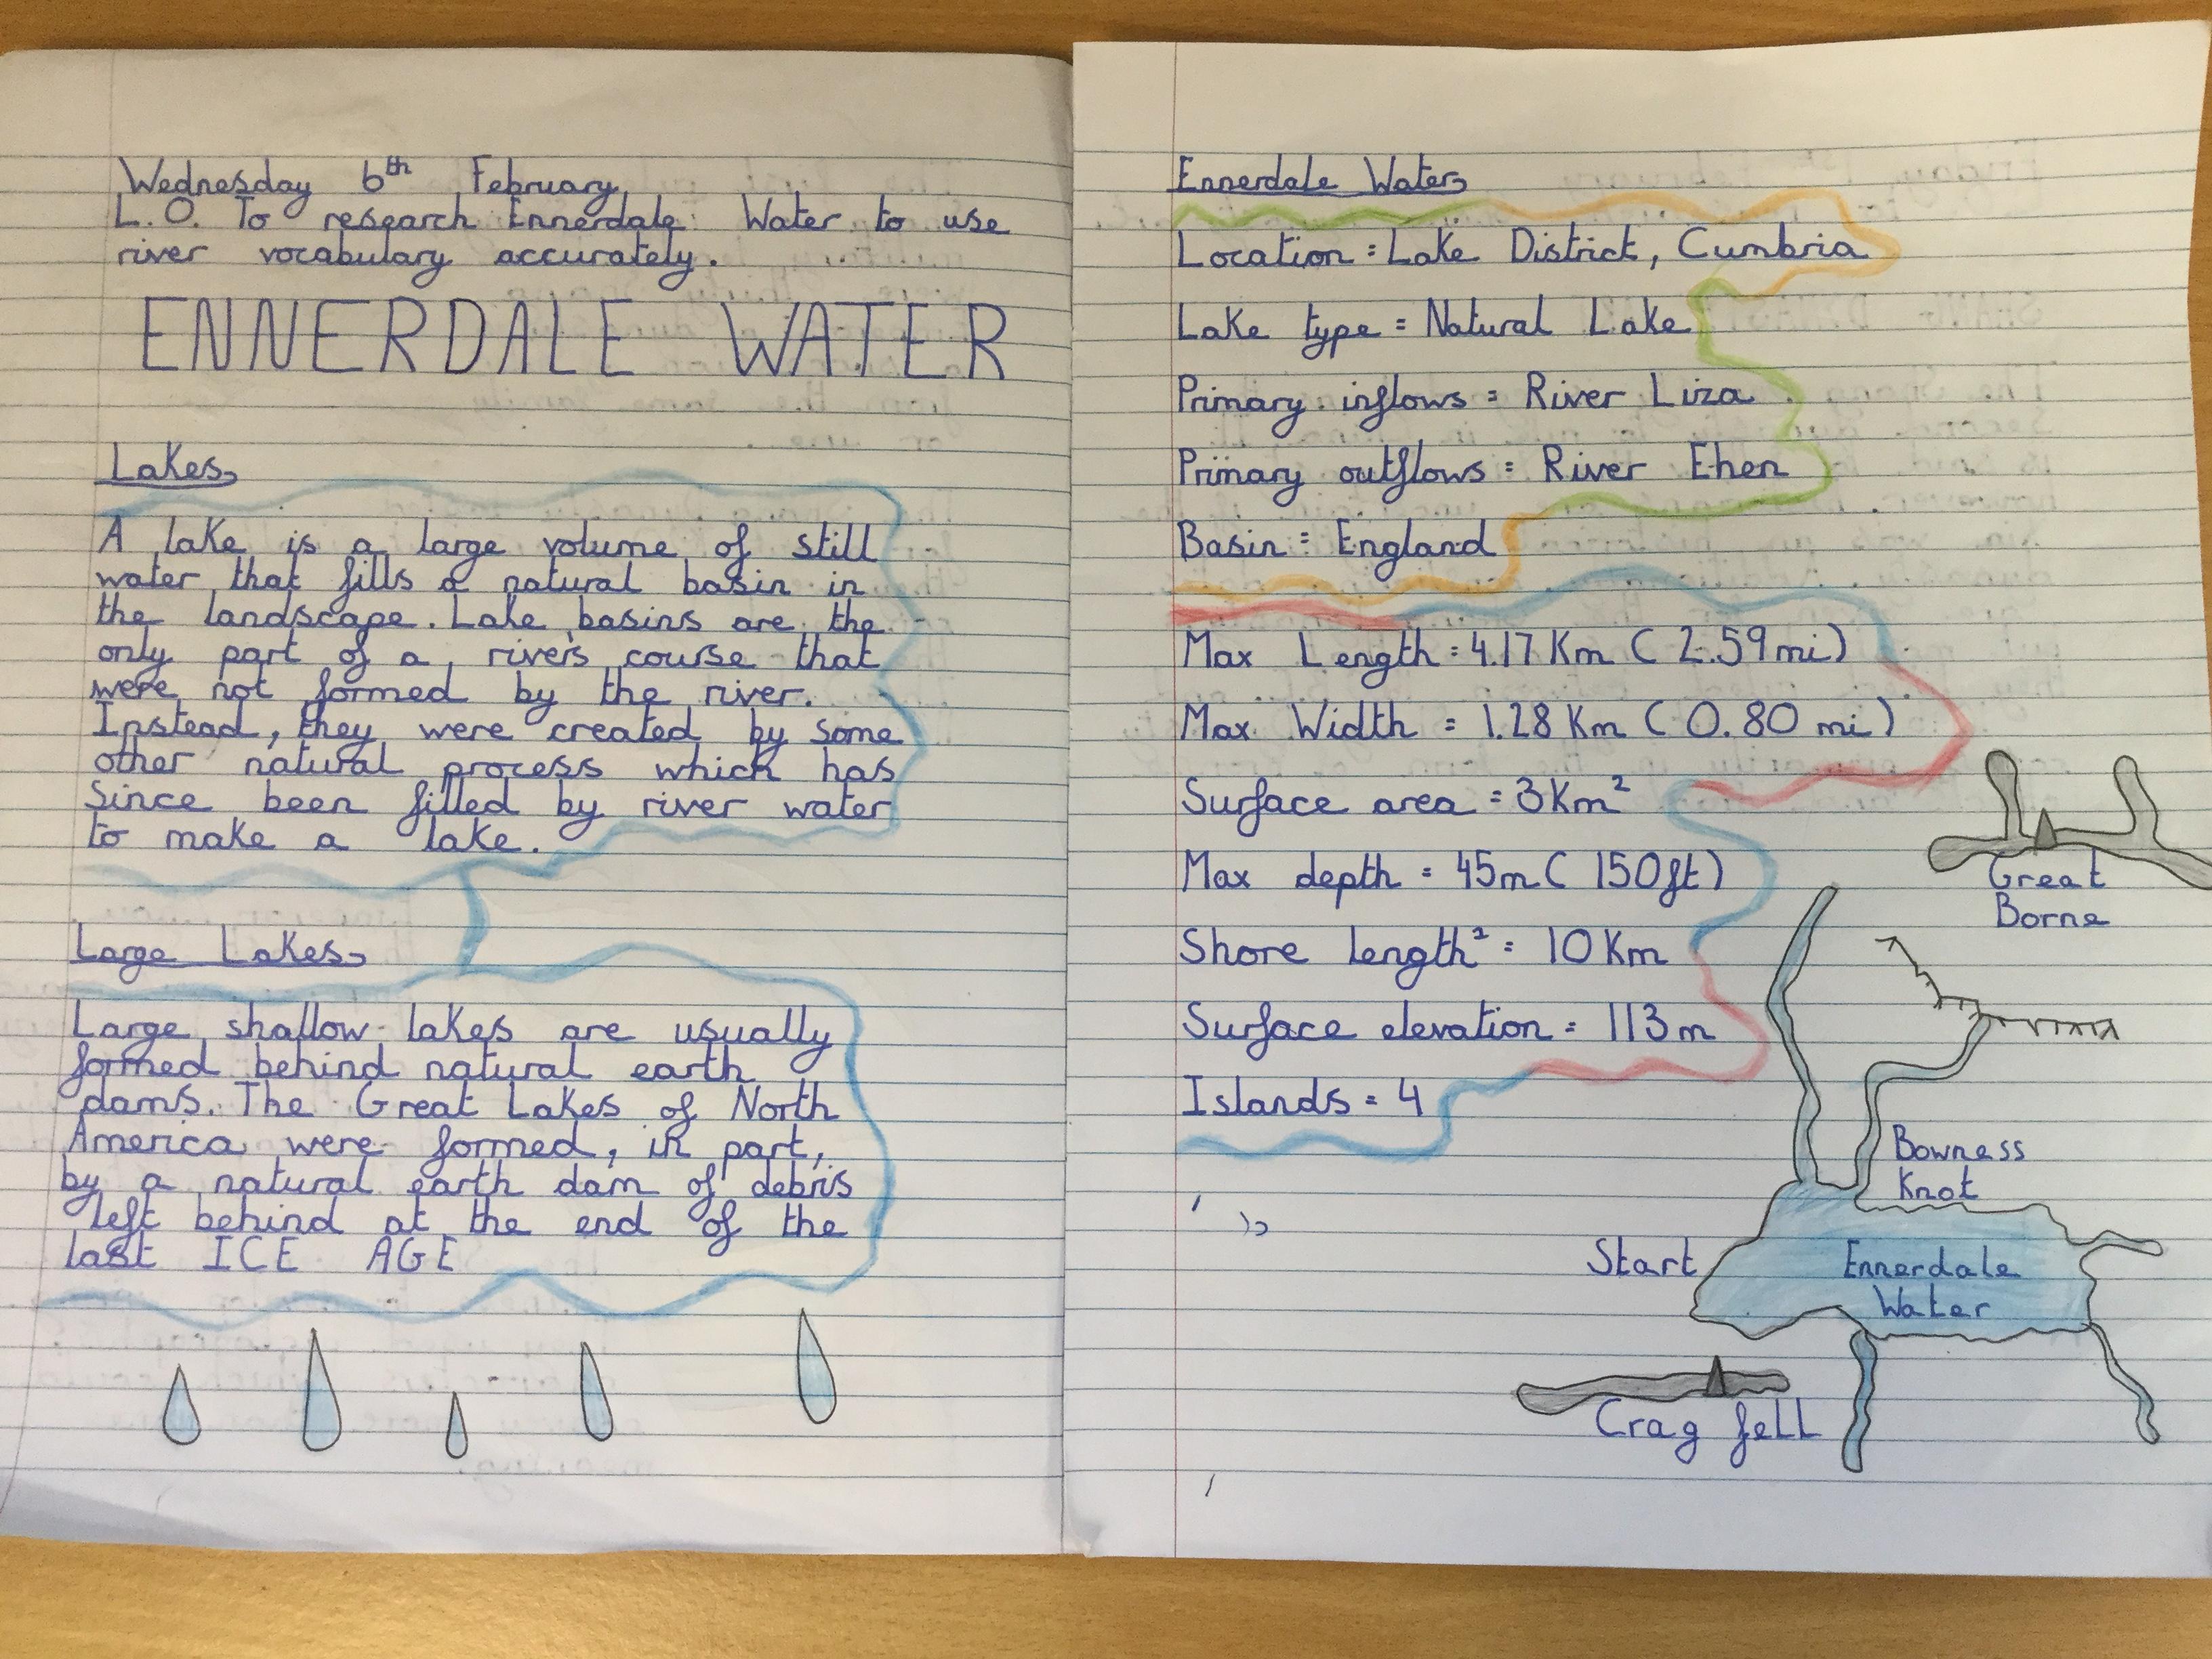 Wednesday 6th February
L.O. To research Ennerdale Water to use
river vocabulary accurately.
ENNERDALE WATER
Lakes
A lake is a large volume of still
water that fills a natural basin in
the landscape. Lake basins are the
only part of a rivers course that
were not formed by the river.
Instead, they were created by some
other natural process which has
since been filled by river water
to make a lake.
Large Lakes
Large shallow lakes are usually
formed behind natural earth
dams. The Great Lakes of North
America were formed, in part,
by a natural earth dam of debris
left behind at the end of the
last ICE AGE
Ennerdale Water
Location = Lake District, Cumbria
Lake type = Natural Lake
Primary inflows = River Liza
Primary outflows = River Ehen
Basin = England
Max Length = 4.17 Km ( 2.59 mi)
Max Width = 1.28 Km ( 0.80 mi)
Surface area = 3 Km²
Max depth = 45m ( 150ft)
Shore length¹ = 10 Km
Surface elevation = 113 m
Islands = 4
Great
Borne
Bowness
Knot
Start
Ennerdale
Water
Crag fell